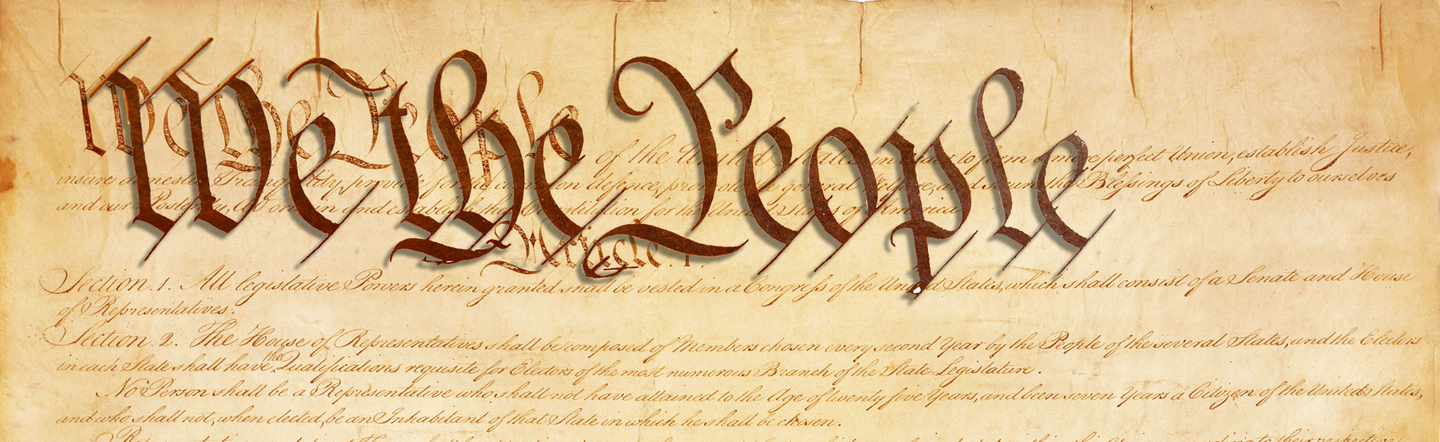 We the People
We the People of the United States, in Order to form a more perfect Union, establish Justice,
insure domestic Tranquility, provide for the common defence, promote the general Welfare, and secure the Blessings of Liberty to ourselves
and our Posterity, do ordain and establish this Constitution for the United States of America.
Article. I.
Section. 1. All legislative Powers herein granted shall be vested in a Congress of the United States, which shall consist of a Senate and House
of Representatives.
Section. 2. The House of Representatives shall be composed of Members chosen every second Year by the People of the several States, and the Electors
in each State shall have the Qualifications requisite for Electors of the most numerous Branch of the State Legislature.
No Person shall be a Representative who shall not have attained to the Age of twenty five Years, and been seven Years a Citizen of the United States,
and who shall not, when elected, be an Inhabitant of that State in which he shall be chosen.